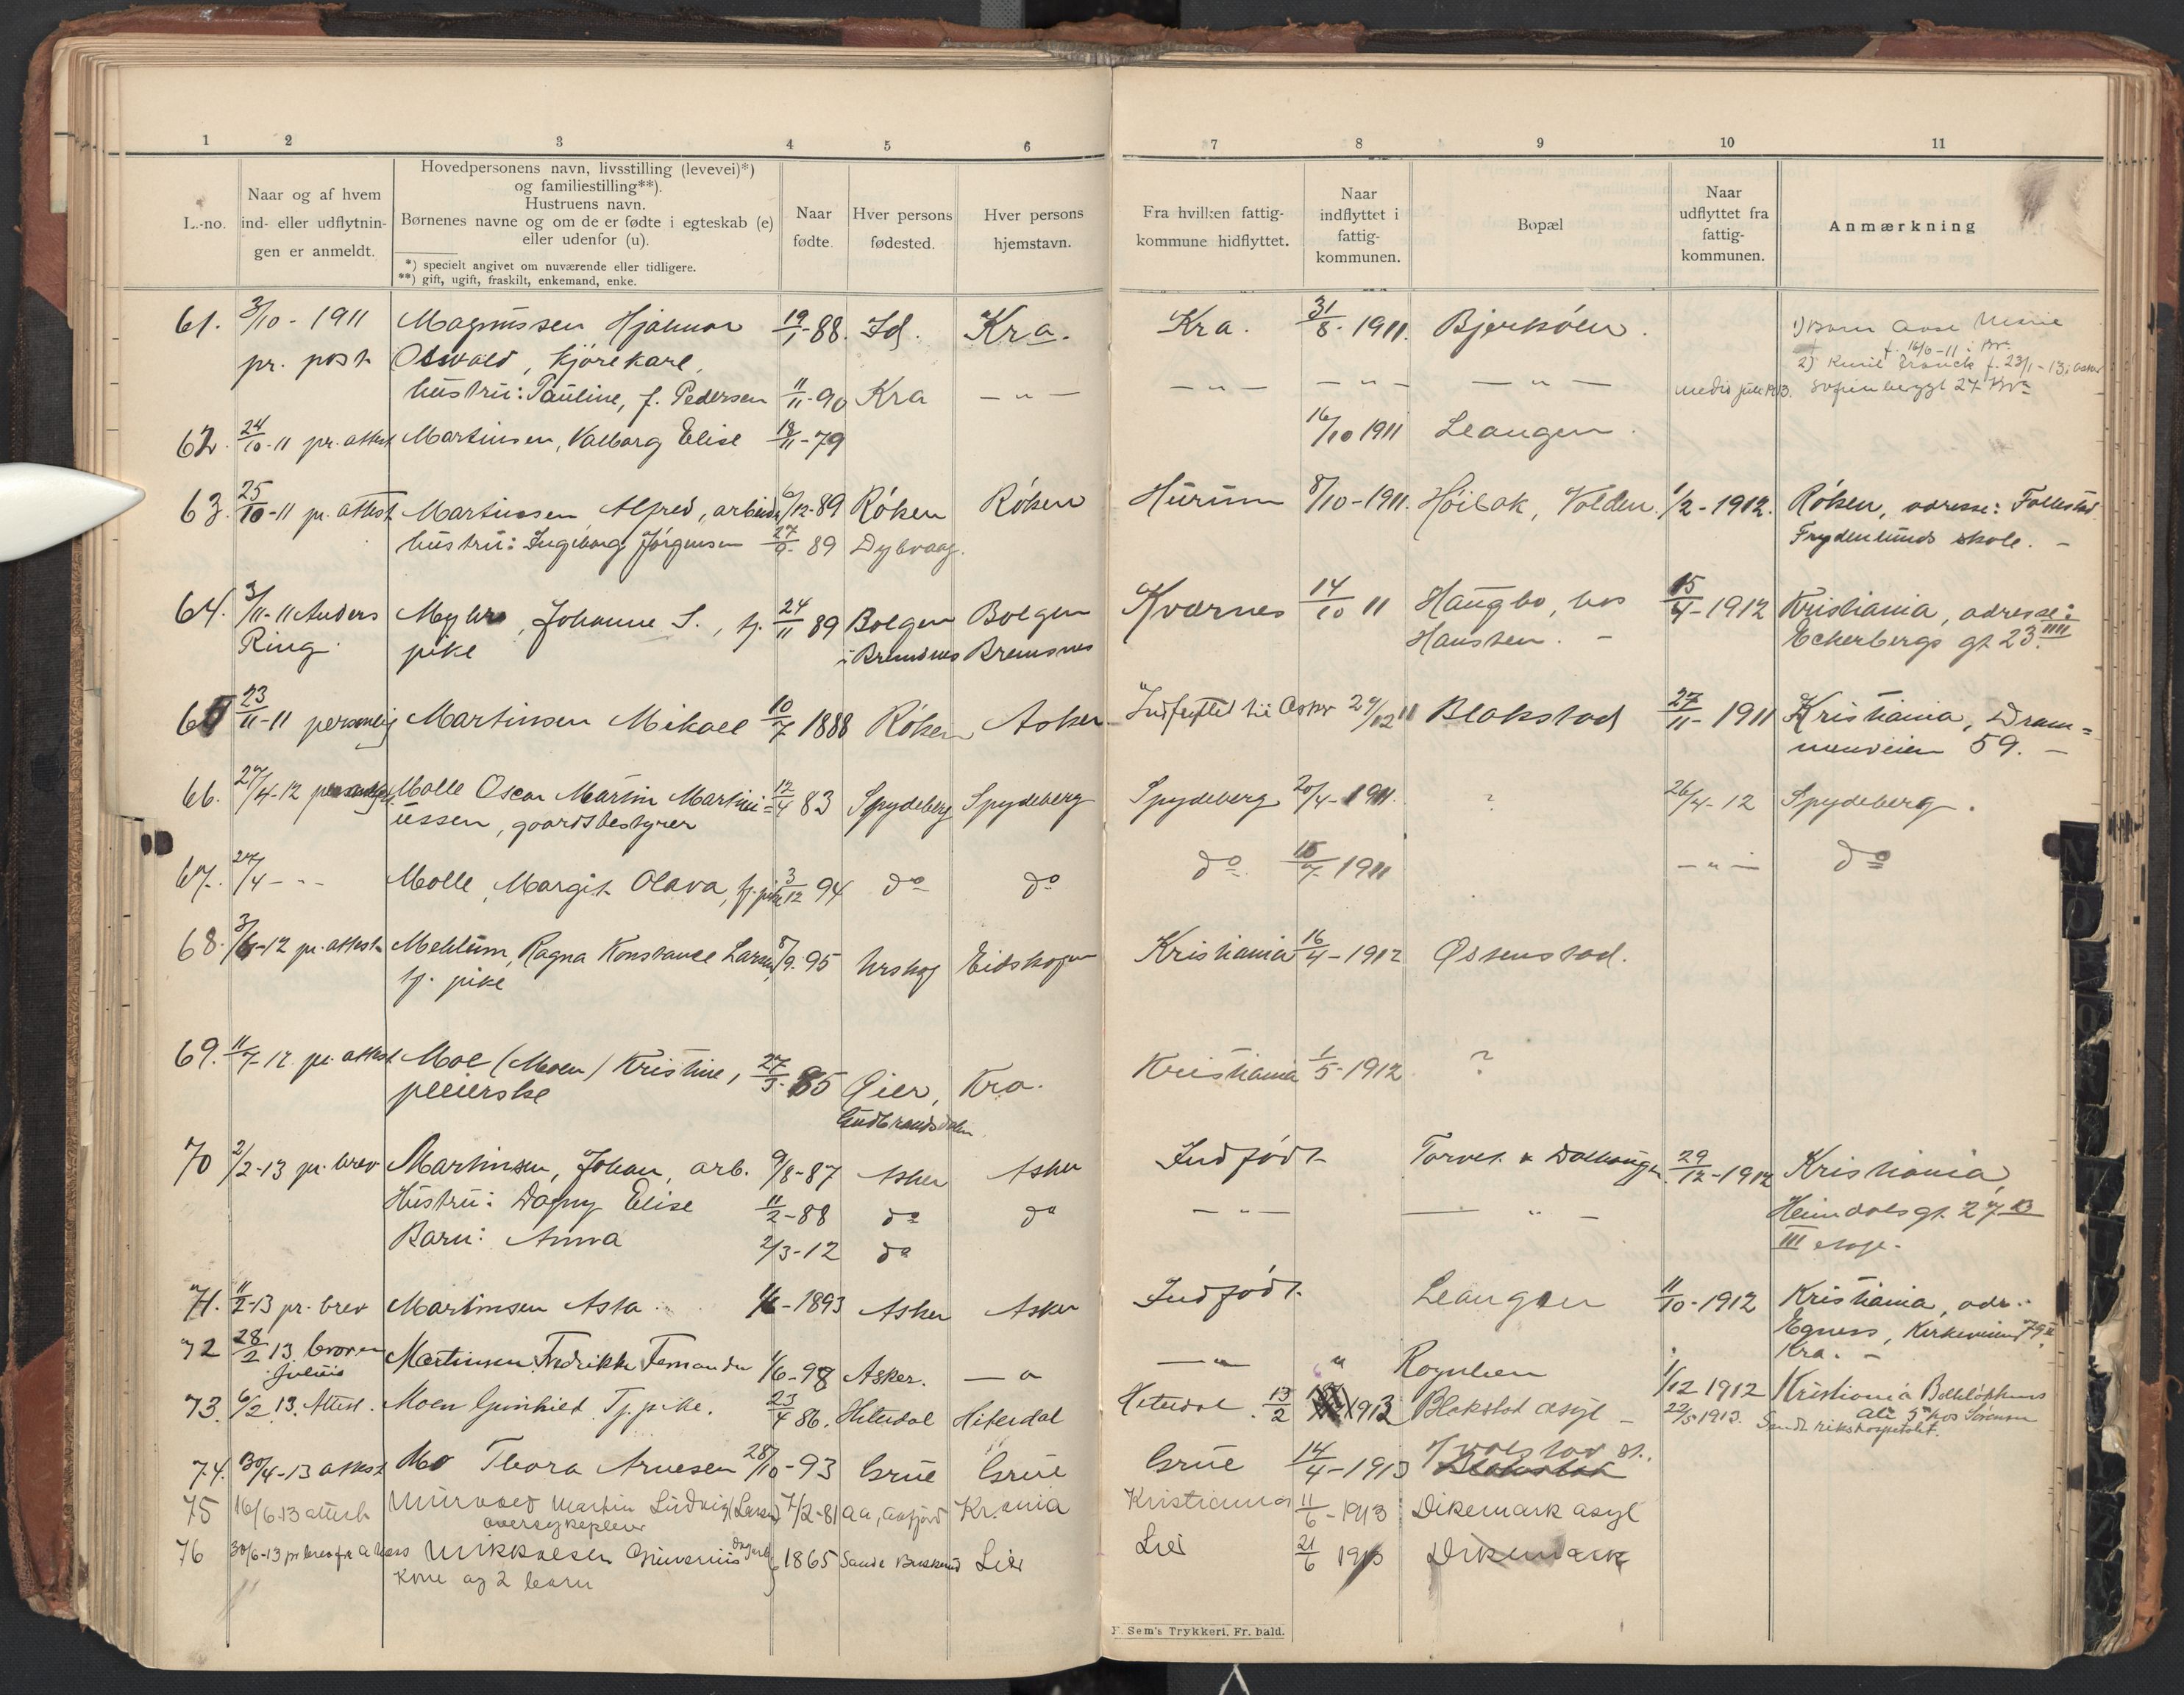 1 2 3 4 5 6 7 8 9 10 11
L.-no.
Naar og af hvem
ind- eller udflytnin-
gen er anmeldt.
Hovedpersonens navn, livsstilling (levevei)*)
og familiestilling**).
Hustruens navn.
Børnenes navne og om de er fødte i egteskab (e)
eller udenfor (u).
*) specielt angivet om nuværende eller tidligere.
**) gift, ugift, fraskilt, enkemand, enke.
Naar
fødte.
Hver persons
fødested.
Hver persons
hjemstavn.
Fra hvilken fattig-
kommune hidflyttet.
Naar
indflyttet i
fattig-
kommunen.
Bopæl
Naar
udflyttet fra
fattig-
kommunen.
Anmærkning
61. 3/10 - 1911 Magnussen Hjalmar 19/1-88. Id. Kra. Kra. 31/8-1911. Bjerkåsen.
pr. post Osvald, kjørekarl,
hustru: Pauline, f. Pedersen 11/11-90 Kra — " — — " — — " — — " — medio juli 1913. Sofienberggt 27 Kra
62. 24/10-11 pr. attest Martinsen, Valborg Elise 18/11-79 16/10 1911 Leangen.
63. 25/10-11 pr. attest Martinsen Alfred, arbeider 6/12-89 Røken Røken Hurum 8/10-1911. Høibak, Volden. 1/2-1912. Røken, adresse: Follestad
hustru: Ingeborg Jørgensen 27/9-89 Dybvaag. Frydenlunds skole. —
64. 3/11-11 Anders Myhre, Johanne S., tj. 24/11 89 Bolgen Bolgen Kværnes 14/10 11 Haugbo, hos 15/4-1912 Kristiania, adresse:
Ring. pike i Bremsnes Bremsnes Hansten. — Eckerbergs gt 23 IIII
65 23/11-11 personlig Martinsen Mikael 10/7 1888 Røken Asker Indflyttet til Asker Blakstad 27/11-1911 Kristiania, Dram=
mensveien 59. —
66. 27/4-12 Molle Oscar Martin Martini= 12/4 83 Spydeberg Spydeberg Spydeberg 20/4-1911. ? 26/4-12 Spydeberg.
ussen, gaardsbestyrer
67. 27/4 - - - Molle, Margit Olava, tj. pike 3/12 94 do do do 15/7 1911 — " — do
68. 3/6-12 pr. attest Mehlum, Ragna Konstance Larsen, 8/9-95 Urskog Eidskogen Kristiania 16/4-1912 Østenstad.
tj. pike
69. 11/7-12. pr. attest Moe (Moen) Kristine, 27/3-85 Øier, Kra. Kristiania 1/5-1912 ?
pleierske Gudbrandsdalen
70 2/2-13 pr. brev Martinsen, Johan, arb. 9/8-87 Asker Asker Indfødt Torvet. 29/12-1912 Kristiania,
Hustru: Dagny Elise 11/2-88 do do — " — — " — Heimdalsgt. 27 B
Barn: Anna 2/3-12 do III etage.
71. 11/2-13 pr. brev Martinsen Asta 1/6-1893 Asker Asker Indfødt. Leangen 11/10-1912 Kristiania, adr.:
Egness, Kirkeveien 79 II
Kra. —
72 28/2 13 broren Martinsen Fredrikke Fernanda 1/6-98 Asker. — " — " " 1/12 1912 Kristiania
Julius
73. 6/2 13. Attest. Moen Gunhild Tj. pike. 23/4 86. Hiterdal Hiterdal Hiterdal. 13/2 1913 Blakstad asyl — 22/5 1913. Sendt rikshospitalet.
74. 30/4-13 attest Mo Thora Arnesen 28/10-93 Grue Grue Grue 14/4-1913
75 16/6-13 attest Murvold Martin Ludvig (Larsen) 7/2-81 Aa, Aafjord Kr.ania Kristiania 11/6-1913 Dikemark asyl
oversykepleier
76 30/6-13 pr brev fra Mikkelsen 1865 Sande Buskerud Lier Lier 21/6 1913 Dikemark
Kone og 2 barn
F. Sem's Trykkeri, Fr. hald.